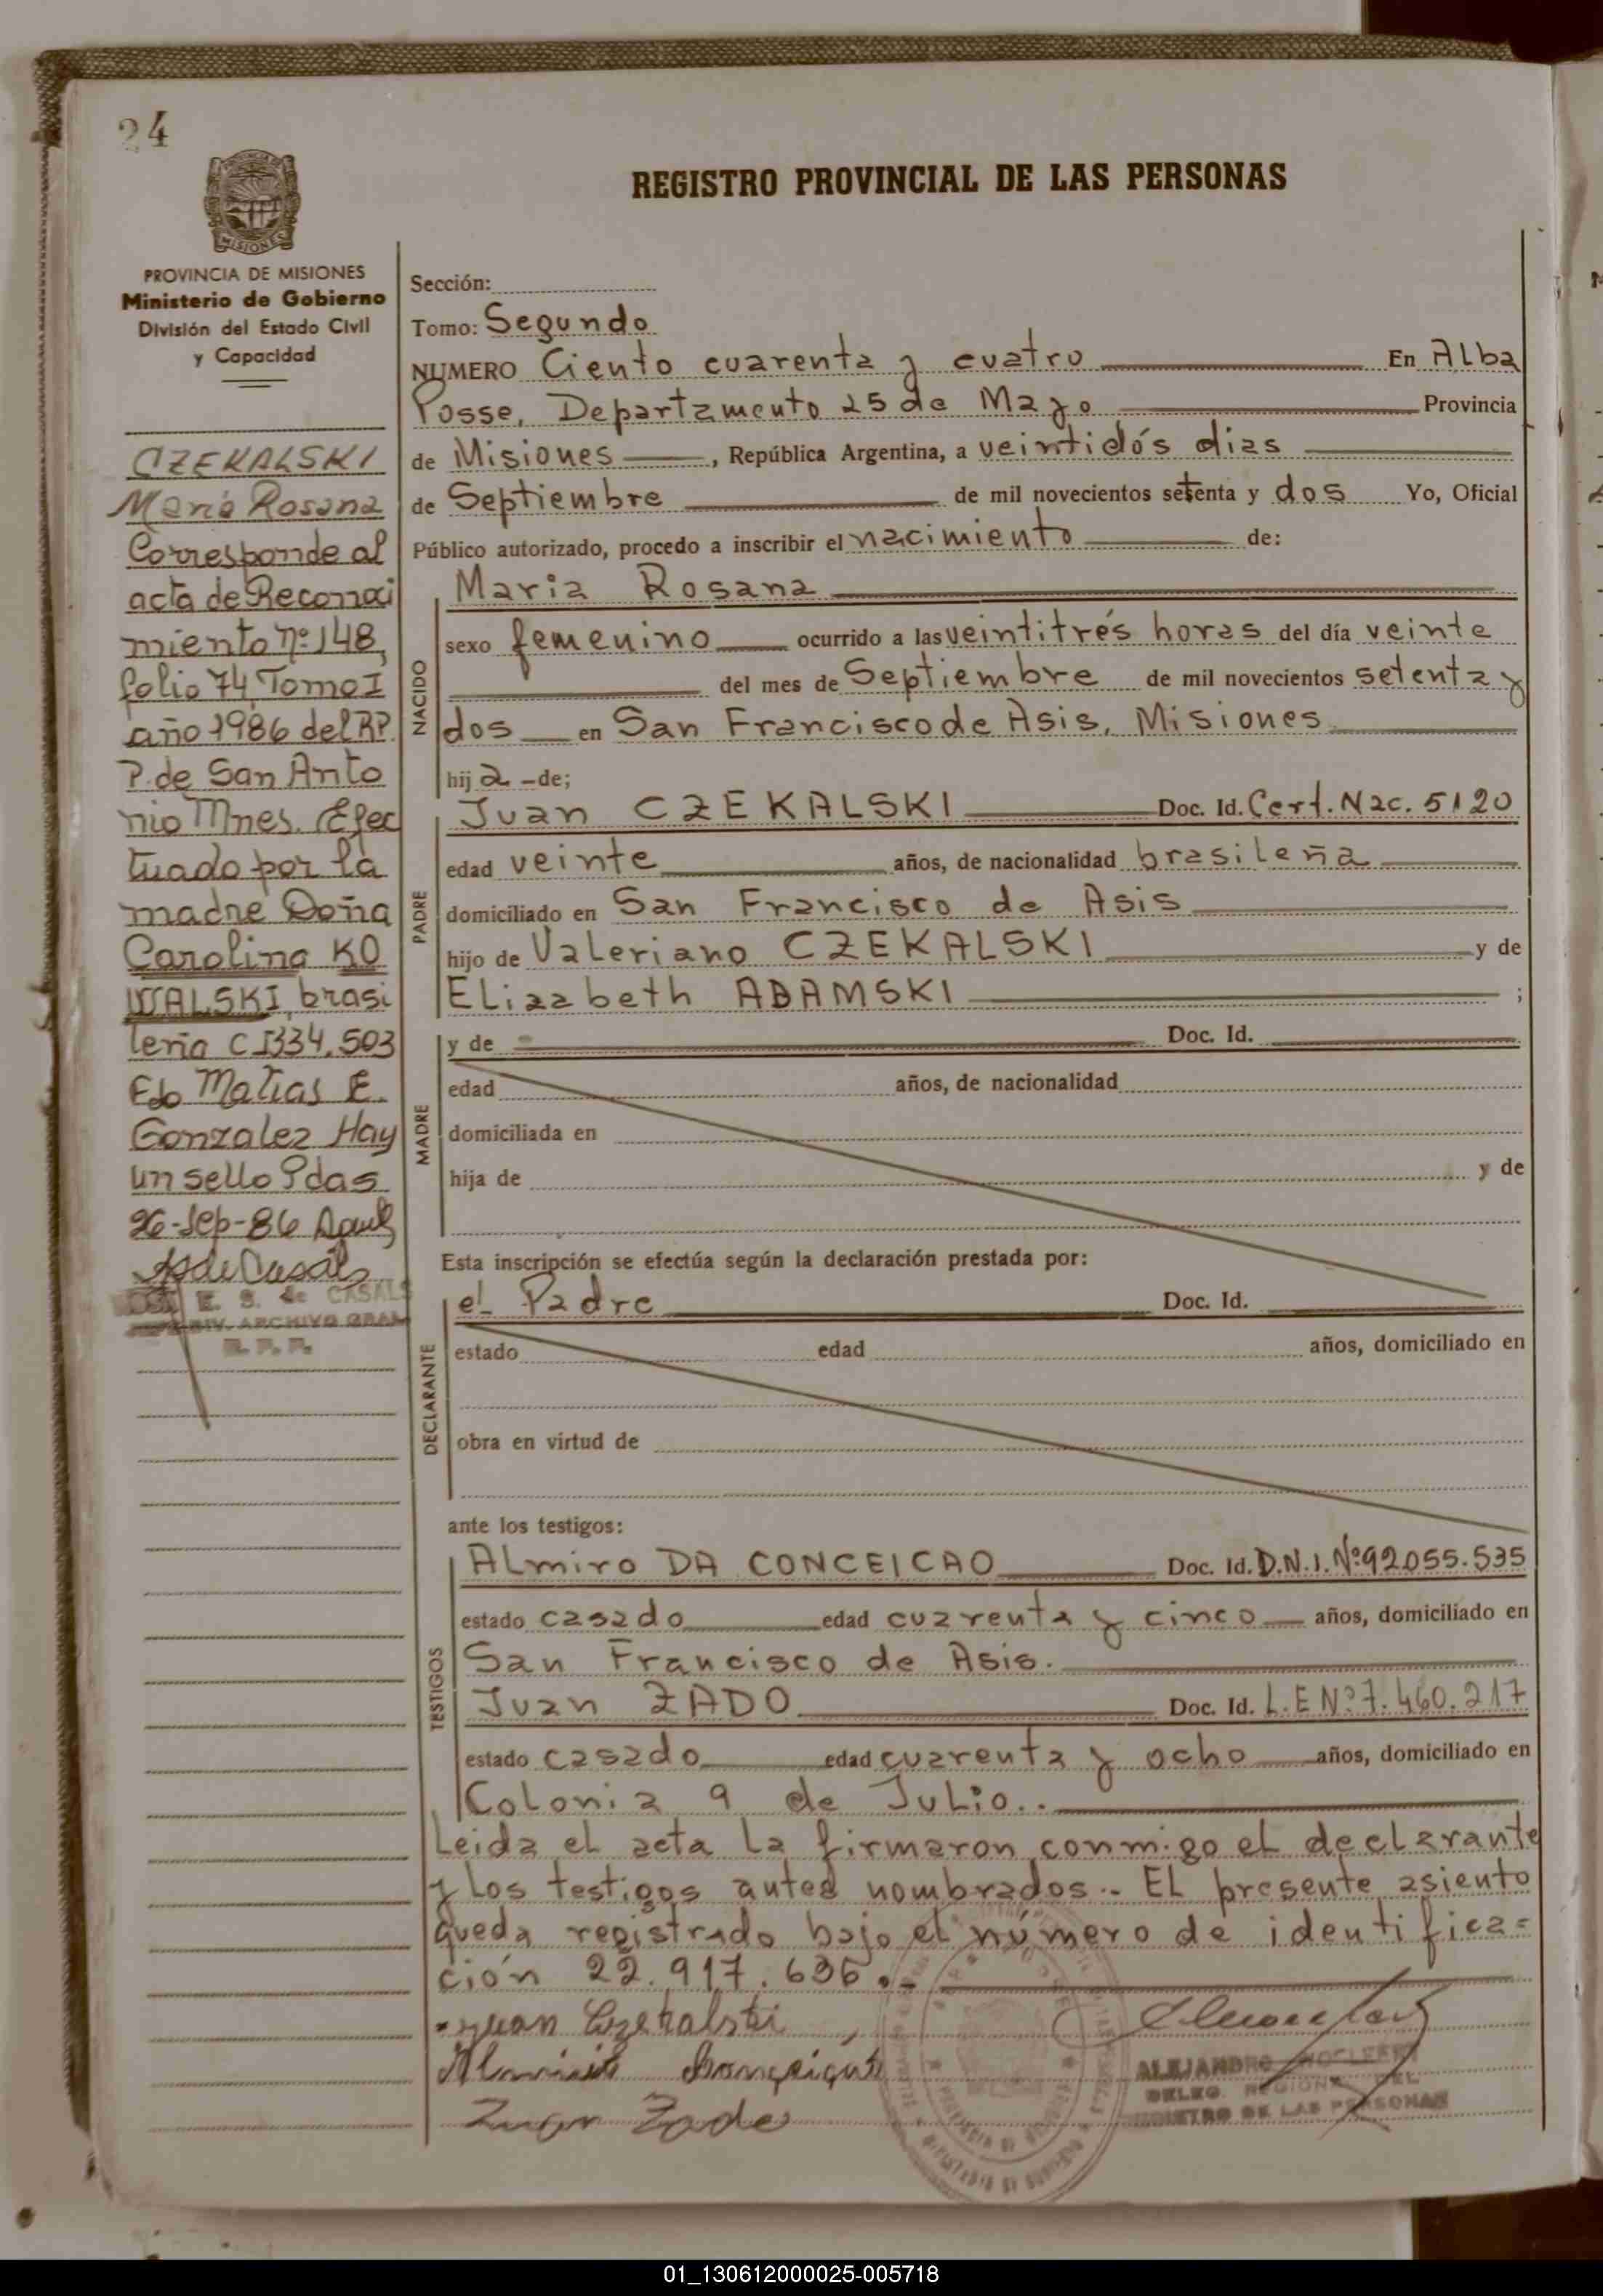 24
REGISTRO PROVINCIAL DE LAS PERSONAS
MISIONES
PROVINCIA DE MISIONES
Ministerio de Gobierno
División del Estado Civil
y Capacidad
CZEKALSKI
María Rosana
Corresponde al
acta de Reconoci
miento nº 148,
folio 74, Tomo I
año 1986 del R.P.
P. de San Anto
nio Mnes. Efec
tuado por la
madre Doña
Carolina KO
WALSKI, brasi
leña C I 334.503
Fdo Matias E.
Gonzalez Hay
un sello Pdas
26-Sep-86
E. S. de CASALS
DIV. ARCHIVO GRAL
R. P. P.
Sección:
Tomo: Segundo
NUMERO Ciento cuarenta y cuatro En Alba
Posse, Departamento 25 de Mayo Provincia
de Misiones, República Argentina, a veintidós dias
de Septiembre de mil novecientos setenta y dos Yo, Oficial
Público autorizado, procedo a inscribir el nacimiento de:
NACIDO
Maria Rosana
sexo femenino ocurrido a las veintitrés horas del día veinte
del mes de Septiembre de mil novecientos setenta y
dos en San Francisco de Asis, Misiones
hij a -de;
PADRE
Juan CZEKALSKI Doc. Id. Cert. Nac. 5120
edad veinte años, de nacionalidad brasileña
domiciliado en San Francisco de Asis
hijo de Valeriano CZEKALSKI y de
Elizabeth ADAMSKI ;
MADRE
y de Doc. Id.
edad años, de nacionalidad
domiciliada en
hija de y de
Esta inscripción se efectúa según la declaración prestada por:
DECLARANTE
el Padre Doc. Id.
estado edad años, domiciliado en
obra en virtud de
ante los testigos:
TESTIGOS
Almiro DA CONCEICAO Doc. Id. D.N.I. Nº 92055.535
estado casado edad cuarenta y cinco años, domiciliado en
San Francisco de Asis.
Juan ZADO Doc. Id. L.E Nº 7.460.217
estado casado edad cuarenta y ocho años, domiciliado en
Colonia 9 de Julio..
Leida el acta la firmaron conmigo el declarante
y los testigos antes nombrados.- El presente asiento
queda registrado bajo el número de identifica=
ción 22.917.636.-
Juan Czekalski
Juan Zado
ALEJANDRO
DELEG. REGIONAL DEL
REGISTRO DE LAS PERSONAS
01_130612000025-005718